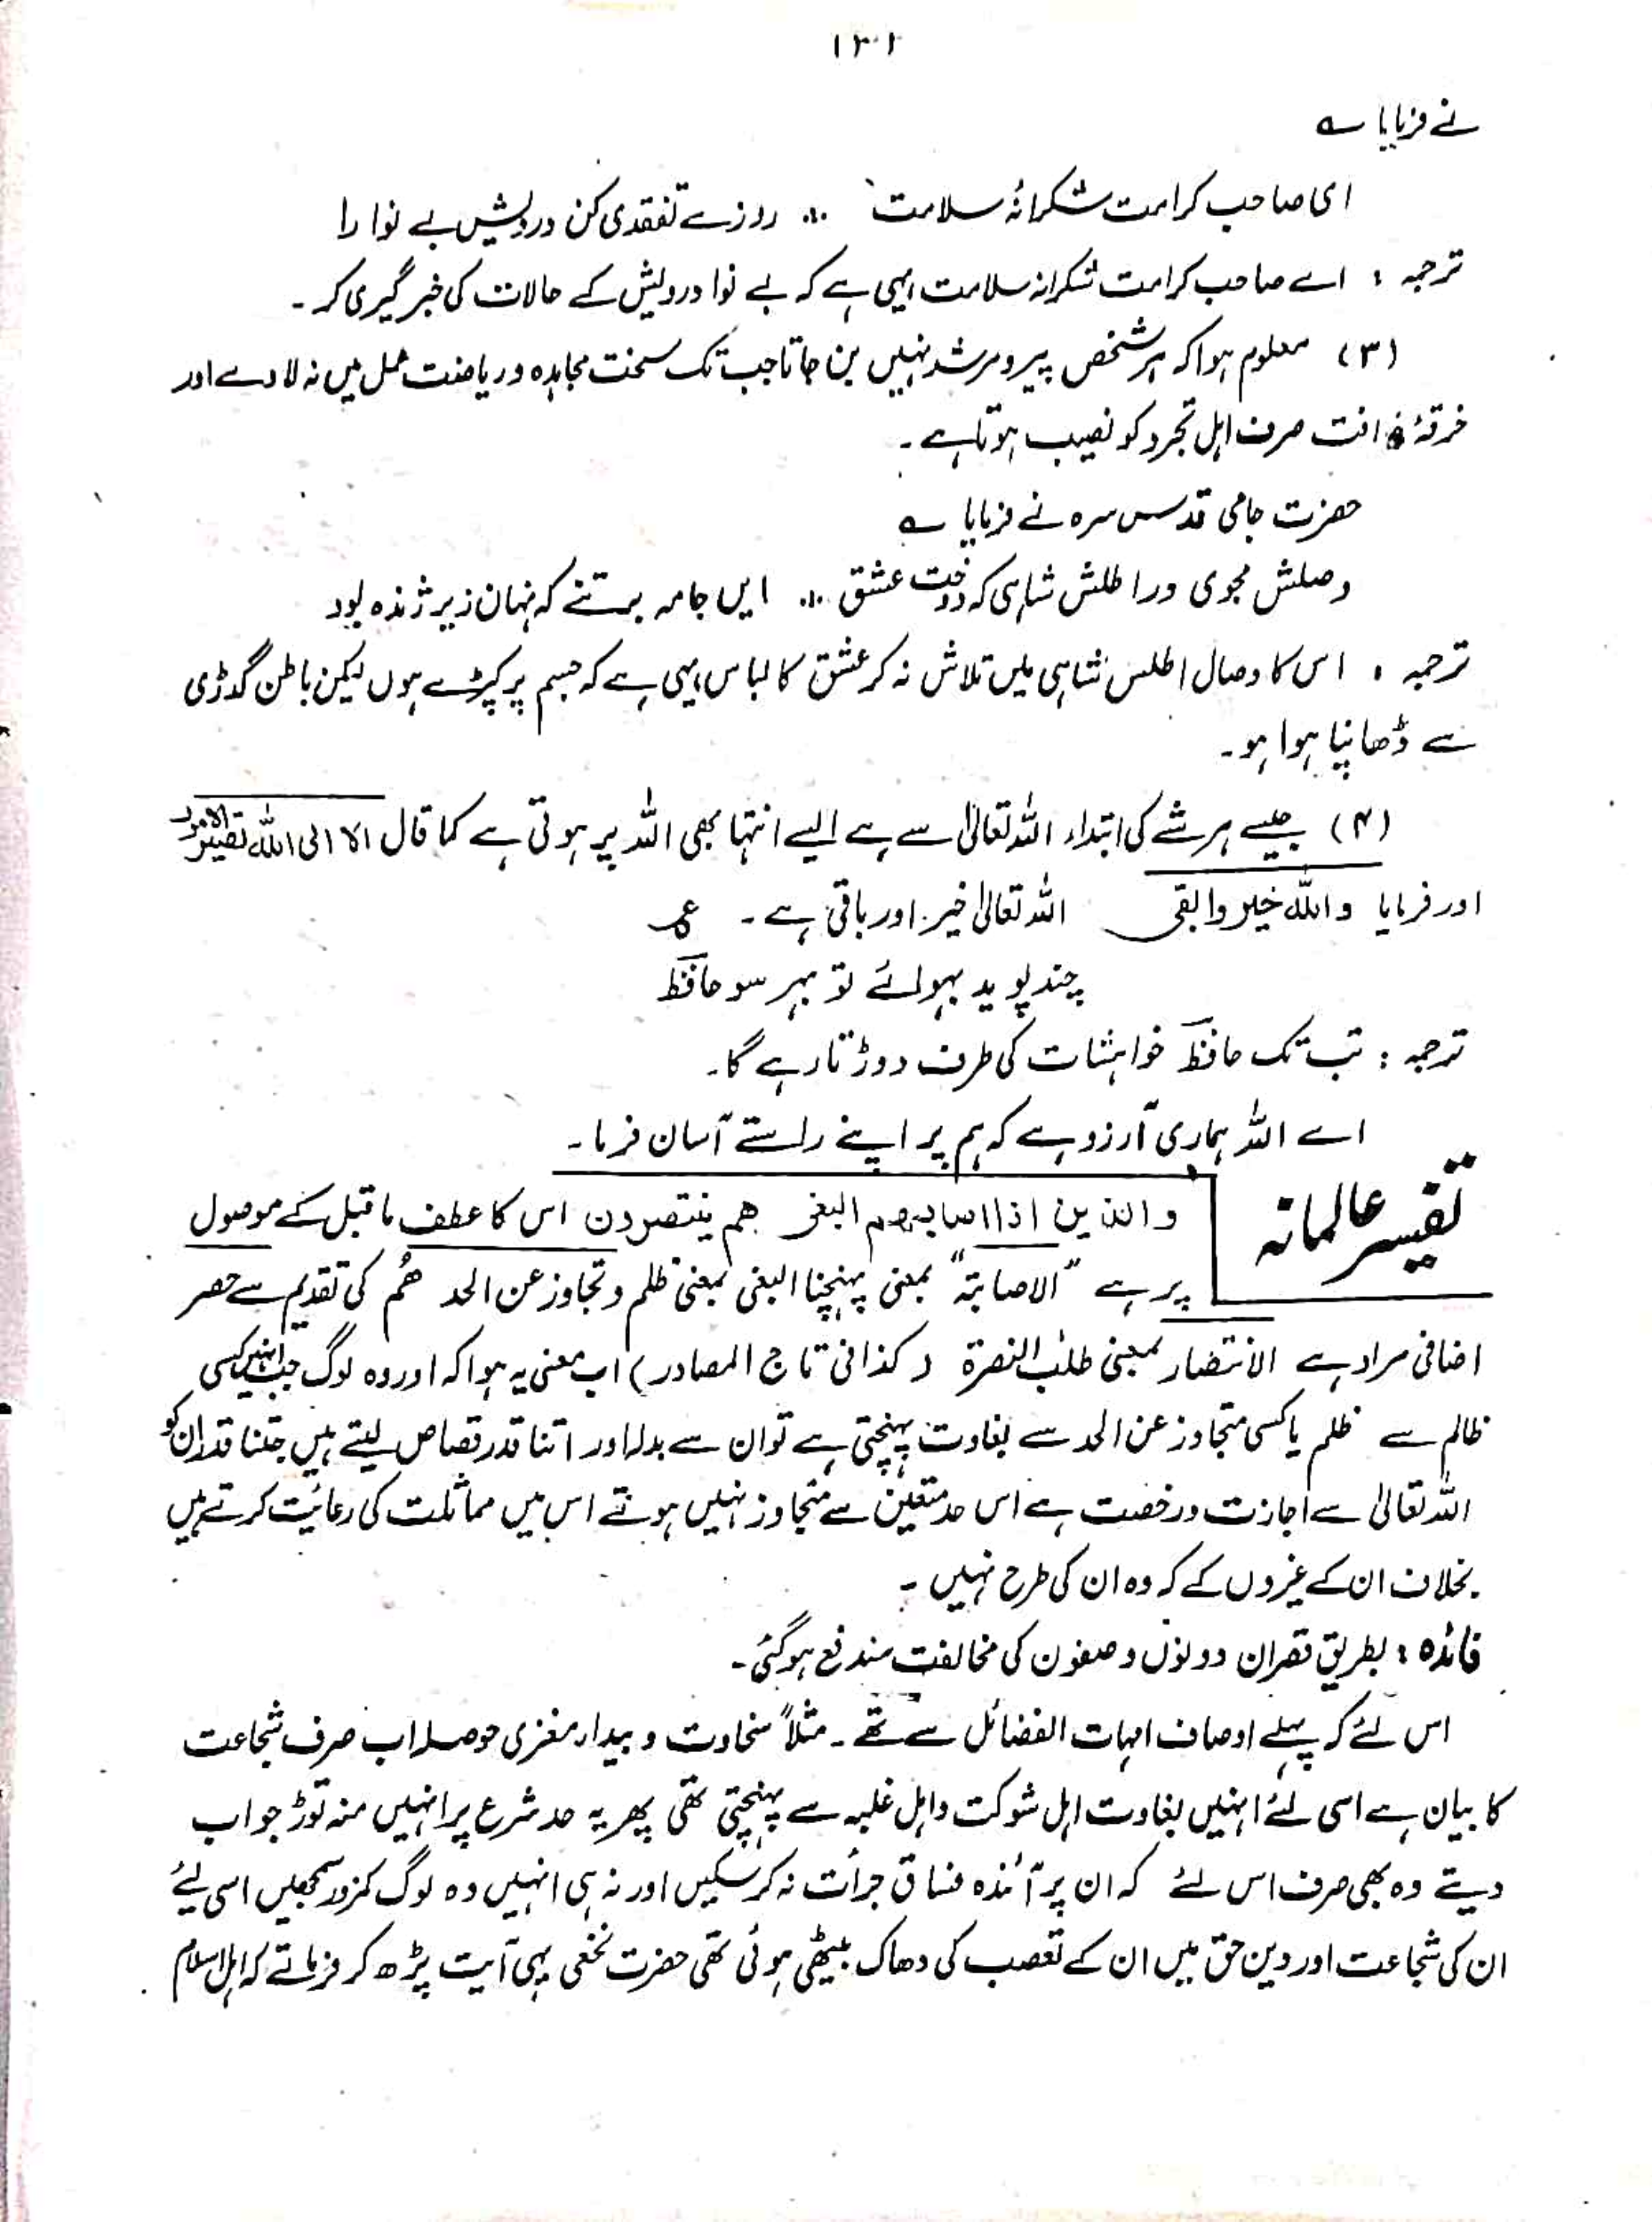 ۱۳۰۲
نے فرمایا ؎
ای صاحب کرامت شکرانۂ سلامت ؞ روزے تفقدی کن درویش بے نوا را
ترجمہ : اے صاحب کرامت شکرانہ سلامت یہی ہے کہ بے نوا درویش کے حالات کی خبر گیری کر ۔
(۳) معلوم ہوا کہ ہر شخص پیر و مرشد نہیں بن جاتا جب تک سخت مجاہدہ و ریاضت عمل میں نہ لاوے اور
خرقۂ صرف اہل تجرد کو نصیب ہوتا ہے ۔
حضرت جامی قدس سرہ نے فرمایا ؎
وصلش مجوی در اطلس شاہی کہ دوخت عشق ؞ ایں جامہ بر تنے کہ نہان زیر ژندہ بود
ترجمہ : اس کا وصال اطلس شاہی میں تلاش نہ کر عشق کا لباس یہی ہے کہ جسم پر کپڑے ہوں لیکن باطن گدڑی
سے ڈھانپا ہوا ہو ۔
(۴) جیسے ہر شے کی ابتداء اللہ تعالیٰ سے ہے ایسے انتہا بھی اللہ پر ہوتی ہے کما قال الا الی اللہ تصیر الامور
اور فرمایا واللہ خیر وابقی اللہ تعالیٰ خیر اور باقی ہے ۔ ؏
چند پوید بہوائے تو بہر سو حافظ
ترجمہ : تب تک حافظ خواہشات کی طرف دوڑتا رہے گا ۔
اے اللہ ہماری آرزو ہے کہ ہم پر اپنے راستے آسان فرما ۔
تفسیر عالمانہ
والذین اذا اصابھم البغی ھم ینتصرون اس کا عطف ماقبل کے موصول
پر ہے "الاصابۃ" بمعنی پہنچنا البغی بمعنی ظلم و تجاوز عن الحد ھُم کی تقدیم سے حصر
اضافی مراد ہے الانتصار بمعنی طلب النصرۃ ( کذا فی تاج المصادر ) اب معنی یہ ہوا کہ اور وہ لوگ جب انہیں کسی
ظالم سے ظلم یا کسی متجاوز عن الحد سے بغاوت پہنچتی ہے تو ان سے بدلہ اور اتنا قدر قصاص لیتے ہیں جتنا قدر ان کو
اللہ تعالیٰ سے اجازت و رخصت ہے اس حد متعین سے متجاوز نہیں ہوتے اس میں مماثلت کی رعایت کرتے ہیں
بخلاف ان کے غیروں کے کہ وہ ان کی طرح نہیں ۔
فائدہ : بطریق دونوں وصفوں کی مخالفت مندفع ہو گئی ۔
اس لئے کہ پہلے اوصاف امہات الفضائل سے تھے ۔ مثلاً سخاوت و بیدار مغزی حوصلہ اب صرف شجاعت
کا بیان ہے اسی لئے انہیں بغاوت اہل شوکت و اہل غلبہ سے پہنچتی تھی پھر یہ حد شرع پر انہیں منہ توڑ جواب
دیتے وہ بھی صرف اس لئے کہ ان پر آئندہ فساق جرأت نہ کر سکیں اور نہ ہی انہیں وہ لوگ کمزور سمجھیں اسی لیے
ان کی شجاعت اور دین حق میں ان کے تعصب کی دھاک بیٹھی ہوئی تھی حضرت نخعی یہی آیت پڑھ کر فرماتے کہ اہل اسلام